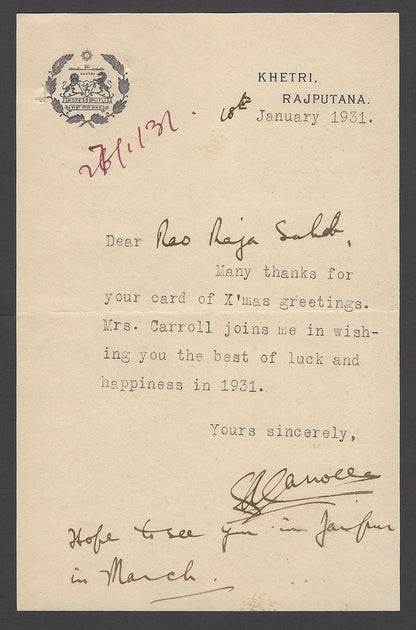 KHETRI
KHETRI,
RAJPUTANA.
18th January 1931.
26/1/31.
Dear Rao Raja Saheb,
Many thanks for
your card of X'mas greetings.
Mrs. Carroll joins me in wish-
ing you the best of luck and
happiness in 1931.
Yours sincerely,
Carroll
Hope to see you in Jaipur
in March.